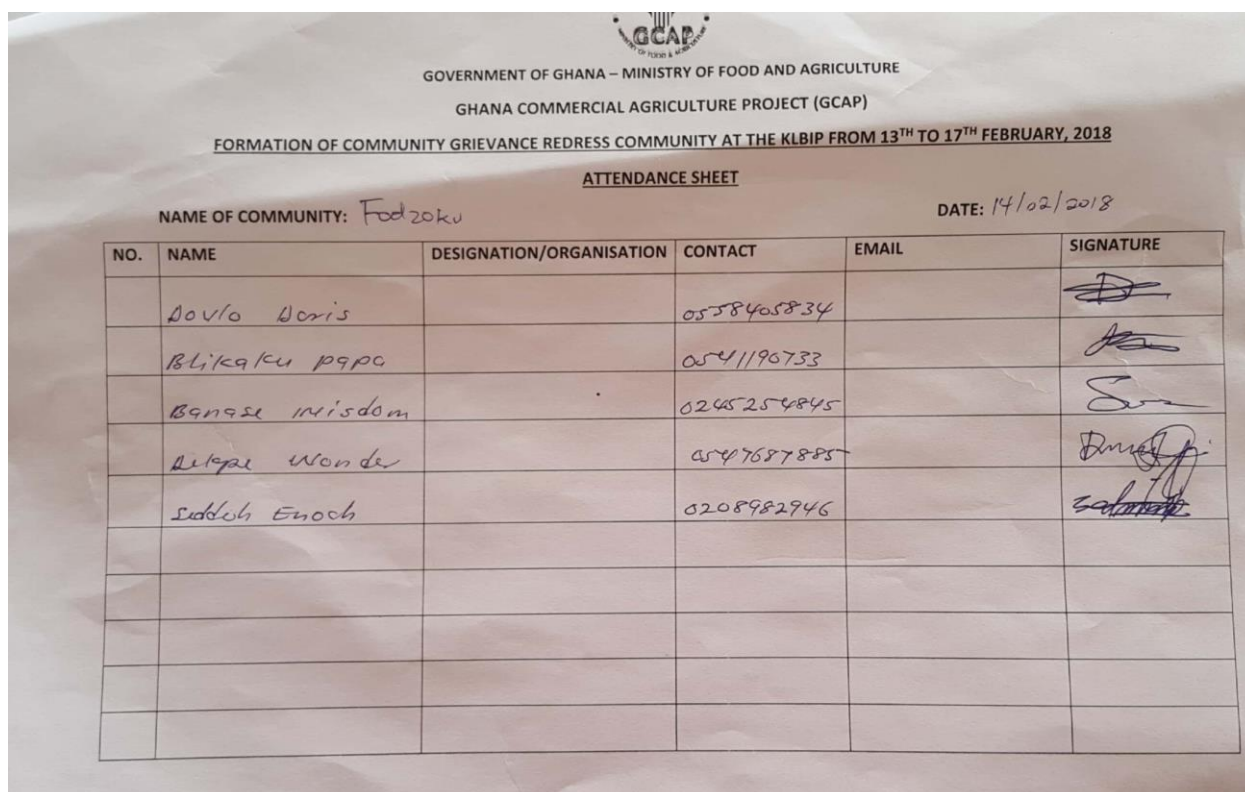 GCAP
MINISTRY OF FOOD & AGRICULTURE
GOVERNMENT OF GHANA – MINISTRY OF FOOD AND AGRICULTURE
GHANA COMMERCIAL AGRICULTURE PROJECT (GCAP)
FORMATION OF COMMUNITY GRIEVANCE REDRESS COMMUNITY AT THE KLBIP FROM 13TH TO 17TH FEBRUARY, 2018
ATTENDANCE SHEET
NAME OF COMMUNITY: Fodzoku DATE: 14/02/2018
NO. NAME DESIGNATION/ORGANISATION CONTACT EMAIL SIGNATURE
Dovlo Doris 0558405834
Blikaku papa 0541190733
Banase Wisdom 0245254845
Wonder 0547687885
Enoch 0208982946